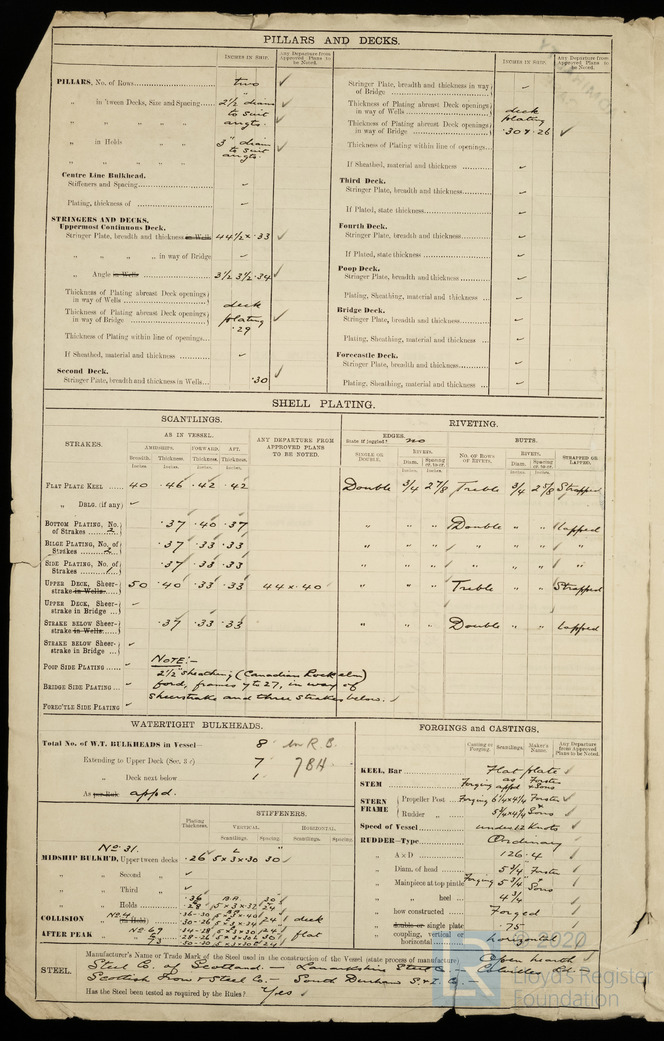 PILLARS AND DECKS.
INCHES IN SHIP.
Any Departure from Approved Plans to be Noted.
PILLARS, No. of Rows two ✓
„ in 'tween Decks, Size and Spacing 2½ diam ✓
„ „ „ „ to suit angts. ✓
„ in Holds „ „ 3" diam ✓
„ „ „ „ to suit angts.
Centre Line Bulkhead.
Stiffeners and Spacing –
Plating, thickness of –
STRINGERS AND DECKS.
Uppermost Continuous Deck.
Stringer Plate, breadth and thickness in Wells 44½ x .33 ✓
„ „ „ „ in way of Bridge –
„ Angle in Wells 3½ 3½ .34 ✓
Thickness of Plating abreast Deck openings in way of Wells
Thickness of Plating abreast Deck openings in way of Bridge deck plating .29 ✓
Thickness of Plating within line of openings
If Sheathed, material and thickness –
Second Deck.
Stringer Plate, breadth and thickness in Wells .30 ✓
INCHES IN SHIP.
Any Departure from Approved Plans to be Noted.
Stringer Plate, breadth and thickness in way of Bridge –
Thickness of Plating abreast Deck openings in way of Wells deck
Thickness of Plating abreast Deck openings in way of Bridge plating .30 & .26 ✓
Thickness of Plating within line of openings
If Sheathed, material and thickness –
Third Deck.
Stringer Plate, breadth and thickness –
If Plated, state thickness –
Fourth Deck.
Stringer Plate, breadth and thickness –
If Plated, state thickness –
Poop Deck.
Stringer Plate, breadth and thickness –
Plating, Sheathing, material and thickness –
Bridge Deck.
Stringer Plate, breadth and thickness –
Plating, Sheathing, material and thickness –
Forecastle Deck.
Stringer Plate, breadth and thickness –
Plating, Sheathing, material and thickness –
SHELL PLATING.
SCANTLINGS.
RIVETING.
STRAKES.
AS IN VESSEL.
AMIDSHIPS. FORWARD. AFT.
Breadth. Thickness. Thickness. Thickness.
Inches. Inches. Inches. Inches.
ANY DEPARTURE FROM APPROVED PLANS TO BE NOTED.
EDGES.
State if joggled? no
SINGLE OR DOUBLE.
RIVETS.
Diam. Spacing cr. to cr.
Inches. Inches.
BUTTS.
NO. OF ROWS OF RIVETS.
RIVETS.
Diam. Spacing cr. to cr.
Inches. Inches.
STRAPPED OR LAPPED.
FLAT PLATE KEEL 40 .46 .42 .42 Double ¾ 2⅞ Treble ¾ 2⅝ Strapped
„ DBLG. (if any) ✓
BOTTOM PLATING, No. of Strakes 2 .37 .40 .37 „ „ „ Double „ „ lapped
BILGE PLATING, No. of Strakes 2 .37 .33 .33 „ „ „ „ „ „ „
SIDE PLATING, No. of Strakes 1 .37 .33 .33 „ „ „ „ „ „ „
UPPER DECK, Sheerstrake in Wells 50 .40 .33 .33 44 x .40 „ „ „ Treble „ „ Strapped
UPPER DECK, Sheerstrake in Bridge –
STRAKE BELOW Sheerstrake in Wells .37 .33 .33 „ „ „ Double „ „ lapped
STRAKE BELOW Sheerstrake in Bridge –
POOP SIDE PLATING –
BRIDGE SIDE PLATING –
FOREC'TLE SIDE PLATING –
NOTE:-
2½" sheathing (Canadian Rock elm)
ford, frames 7 to 27, in way of
sheerstrake and three strakes below. ✓
WATERTIGHT BULKHEADS.
Total No. of W.T. BULKHEADS in Vessel— 8 in R.B.
Extending to Upper Deck (Sec. 3 c) 7 7 BH
„ Deck next below 1
As per Rule appd.
Plating Thickness.
STIFFENERS.
VERTICAL. HORIZONTAL.
Scantlings. Spacing. Scantlings. Spacing.
No. 31.
MIDSHIP BULKH'D, Upper tween decks .26 5 x 3 x .30 30 ✓
„ „ Second „ ✓
„ „ Third „ ✓
„ „ Holds
COLLISION „ (in Hold) No. 4 deck
AFTER PEAK „ No. 69 flat
FORGINGS and CASTINGS.
Casting or Forging. Scantlings. Maker's Name. Any Departure from Approved Plans to be Noted.
KEEL, Bar Flat plate ✓
STEM Forging as appd Forster & Sons ✓
STERN FRAME { Propeller Post Forging 6¼ x 4¼ Forster ✓
Rudder „ 5¾ x 4¼ & Sons ✓
Speed of Vessel under 12 Knots ✓
RUDDER—Type Ordinary
„ A x D 126.4 ✓
„ Diam. of head 5¾ Forster ✓
„ Mainpiece at top pintle Forging 5¾ & Sons ✓
„ „ heel 4¼ ✓
„ how constructed Forged ✓
„ double or single plate .75" ✓
„ coupling, vertical or horizontal horizontal ✓
STEEL. Manufacturer's Name or Trade Mark of the Steel used in the construction of the Vessel (state process of manufacture) Open hearth ✓
Steel Co. of Scotland. — Lanarkshire Steel Co. — Colvilles Ld. —
Scottish Iron & Steel Co. — South Durham S. & I. Co. —
Has the Steel been tested as required by the Rules? Yes ✓
© 2020
LR
Lloyd's Register
Foundation